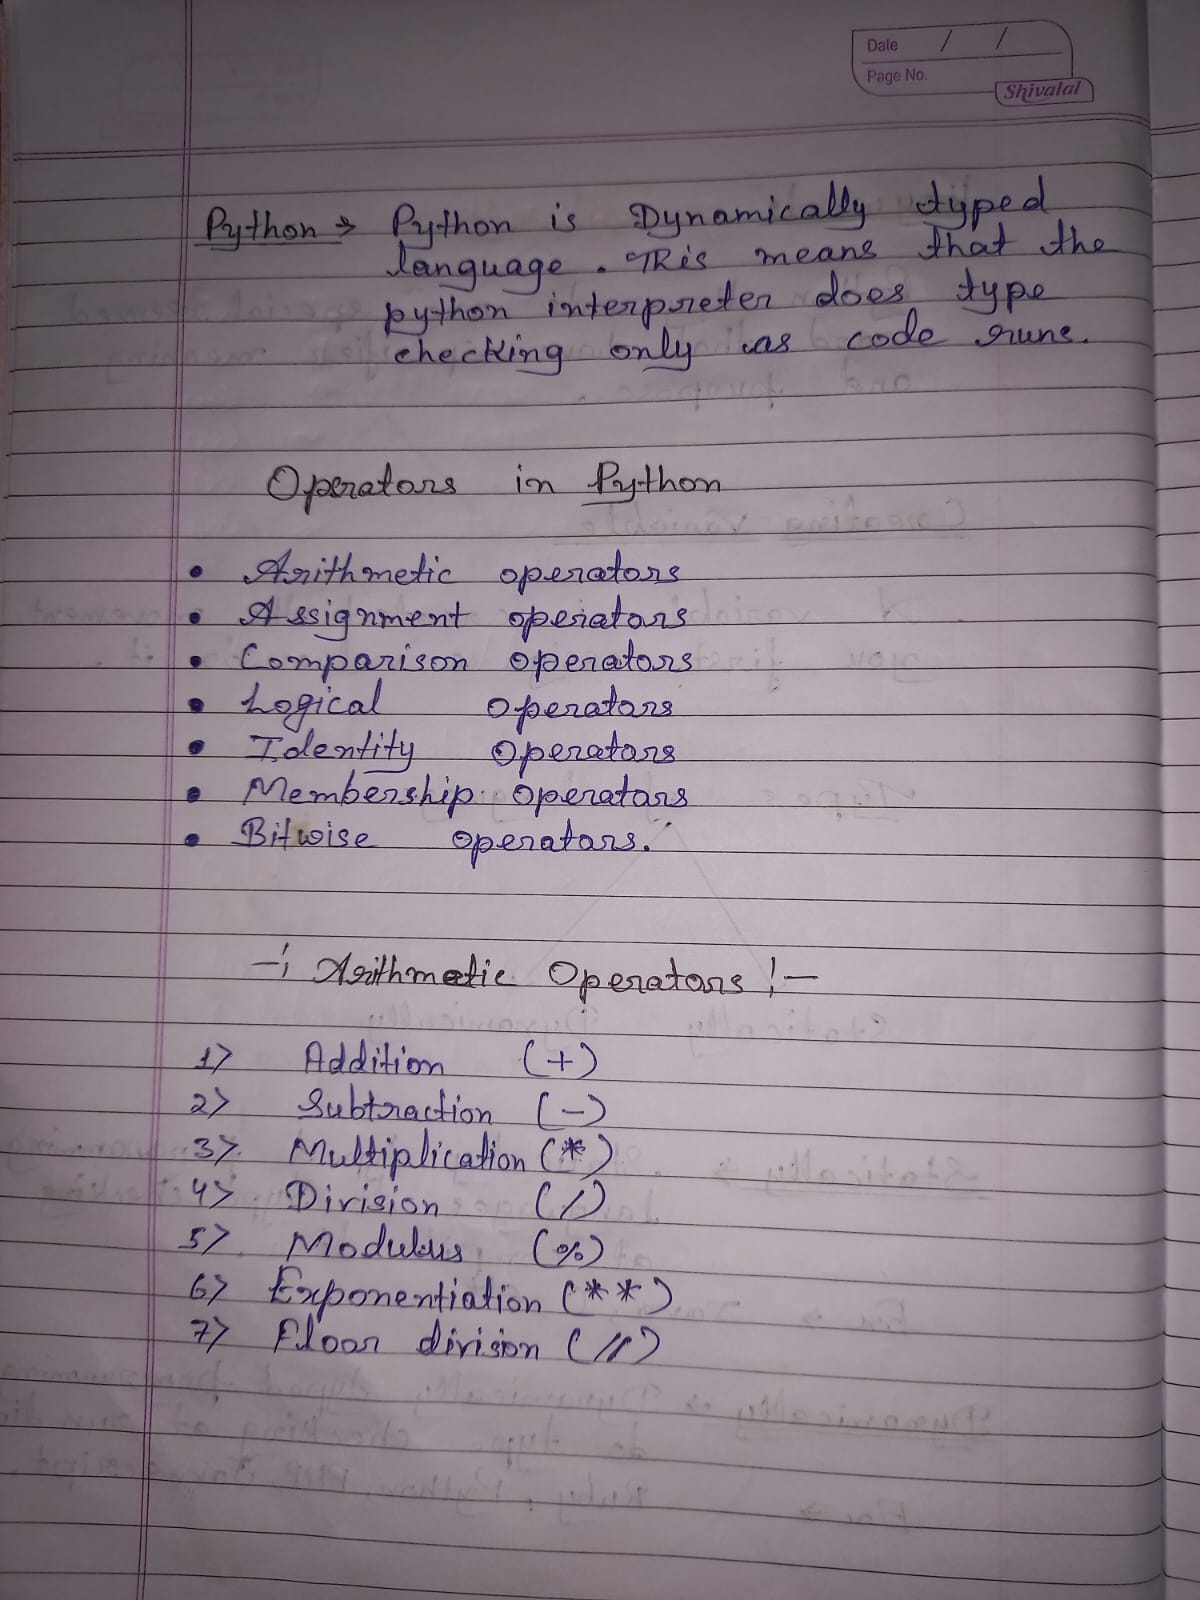 Date / /
Page No.
Shivalal
Python → Python is Dynamically typed
language. This means that the
python interpreter does type
checking only as code runs.
Operators in Python
• Arithmetic operators
• Assignment operators
• Comparison operators
• Logical operators
• Identity operators
• Membership operators
• Bitwise operators.
-: Arithmetic Operators :-
1> Addition (+)
2> Subtraction (-)
3> Multiplication (*)
4> Division (/)
5> Modulus (%)
6> Exponentiation (**)
7> Floor division (//)